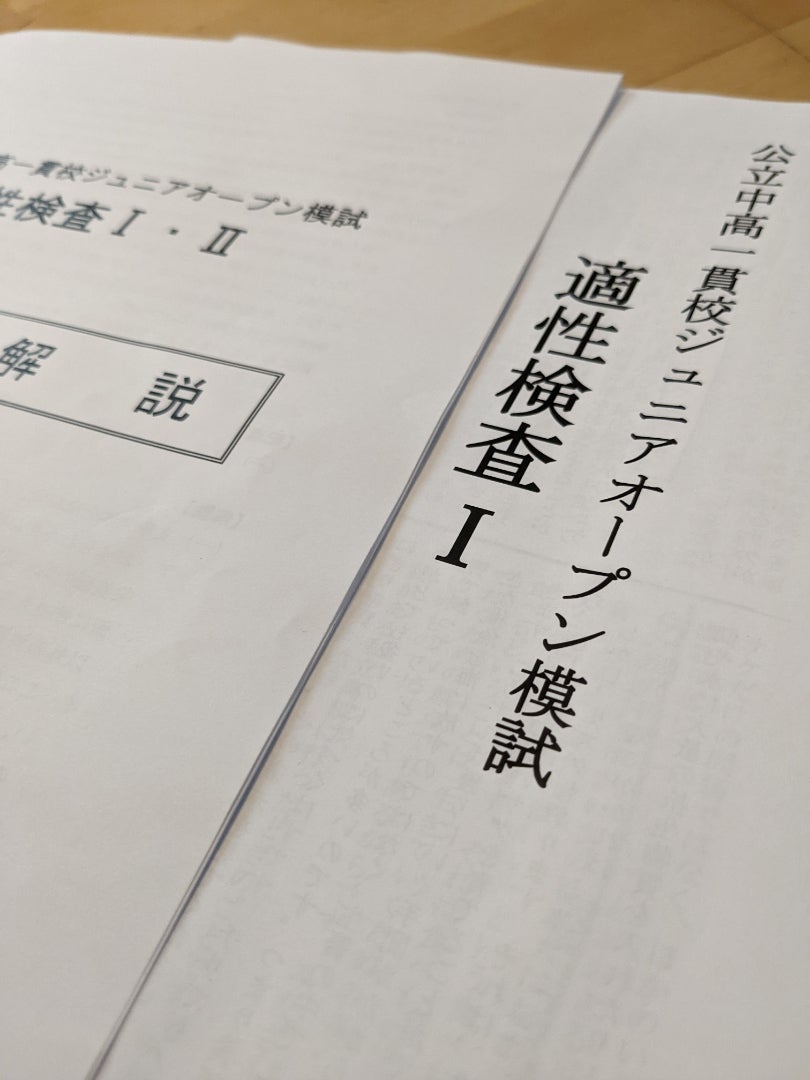 公立中高一貫校ジュニアオープン模試
適性検査Ⅰ
高一貫校ジュニアオープン模試
性検査Ⅰ・Ⅱ
解説